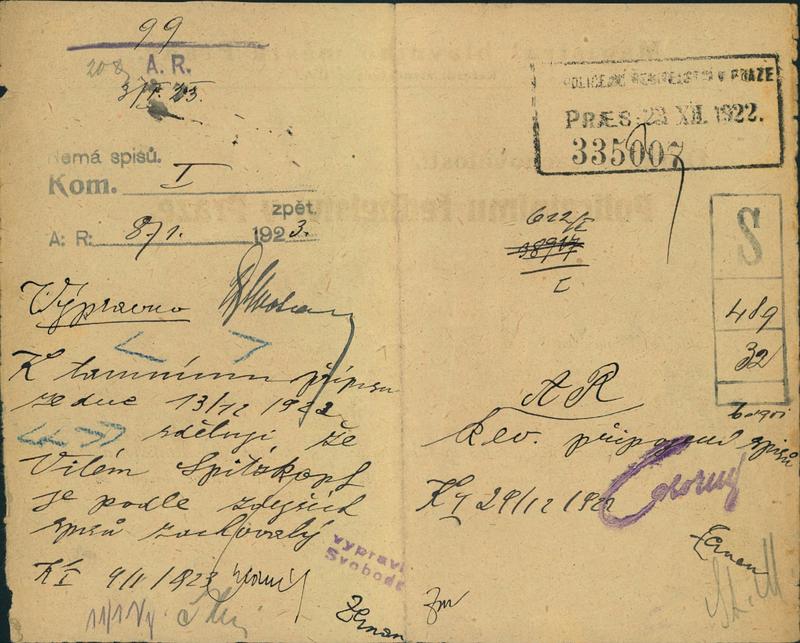 99
208 A. R.
Nemá spisů.
Kom. I
zpět.
A: R: 8/1. 1923.
Výpravno
K tamnímu přípisu
ze dne 13/12 1922
sděluji že
Vilém Spitzkopf
je podle zdejších
spisů zachovalý
K I 9/1 1923
vypravil
Svoboda
Zeman
POLICEJNÍ ŘEDITELSTVÍ V PRAZE
PRÆS. 23 XII. 1922.
335007
622/I
38917
I
S
489
32
AR
k ev. připojení spisů
K I 29/12 1922
Zeman